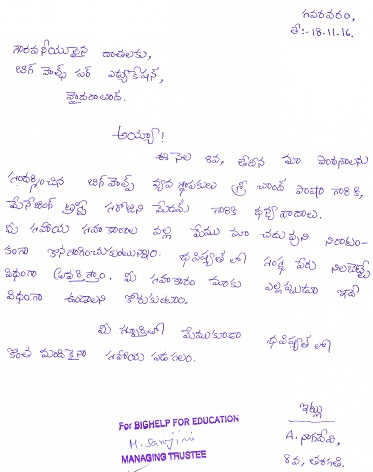 గవరవరం,
తే:- 18-11-16.
గౌరవనీయులైన దాతలకు,
బిగ్ హెల్ప్ ఫర్ ఎడ్యుకేషన్,
హైదరాబాద్.
అయ్యా!
ఈ నెల 8వ, తేదిన మా పాఠశాలను
సందర్శించిన బిగ్‌హెల్ప్ వ్యవస్థాపకులు శ్రీ చాంద్ పాషా గారికి,
మేనేజింగ్ ట్రస్టీ సరోజిని మేడమ్ గారికి ధన్యవాదాలు.
మీ సహాయ సహకారాల వల్ల మేము మా చదువుని నిరాటం-
కంగా కొనసాగించుకుంటున్నాం. భవిష్యత్ లో సంస్థ పేరు నిలబెట్టే
విధంగా ప్రవర్తిస్తాం. మీ సహకారం మాకు ఎల్లప్పుడూ ఇదే
విధంగా ఉండాలని కోరుకుంటూ.
మీ స్ఫూర్తితో మేముకూడా భవిష్యత్ లో
కొంత మందికైనా సహాయ పడగలం.
ఇట్లు
A. నాగదేవి,
8వ, తరగతి.
For BIGHELP FOR EDUCATION
H. Sarojini
MANAGING TRUSTEE